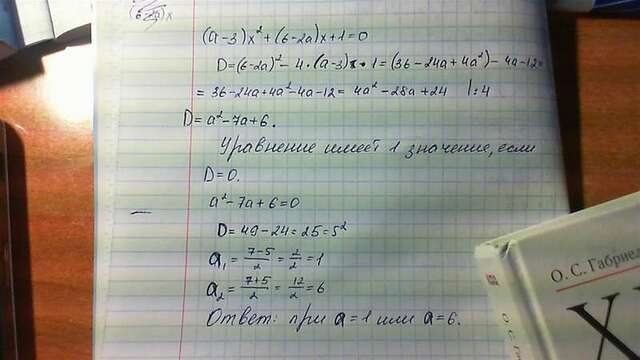 (6-2a)x
(a-3)x²+(6-2a)x+1=0
D=(6-2a)²-4·(a-3)·1=(36-24a+4a²)-4a-12=
=36-24a+4a²-4a-12=4a²-28a+24 |:4
D=a²-7a+6.
Уравнение имеет 1 значение, если
D=0.
a²-7a+6=0
D=49-24=25=5²
a₁=(7-5)/2=2/2=1
a₂=(7+5)/2=12/2=6
Ответ: при a=1 или a=6.
О. С. Габриел
О. С. Г